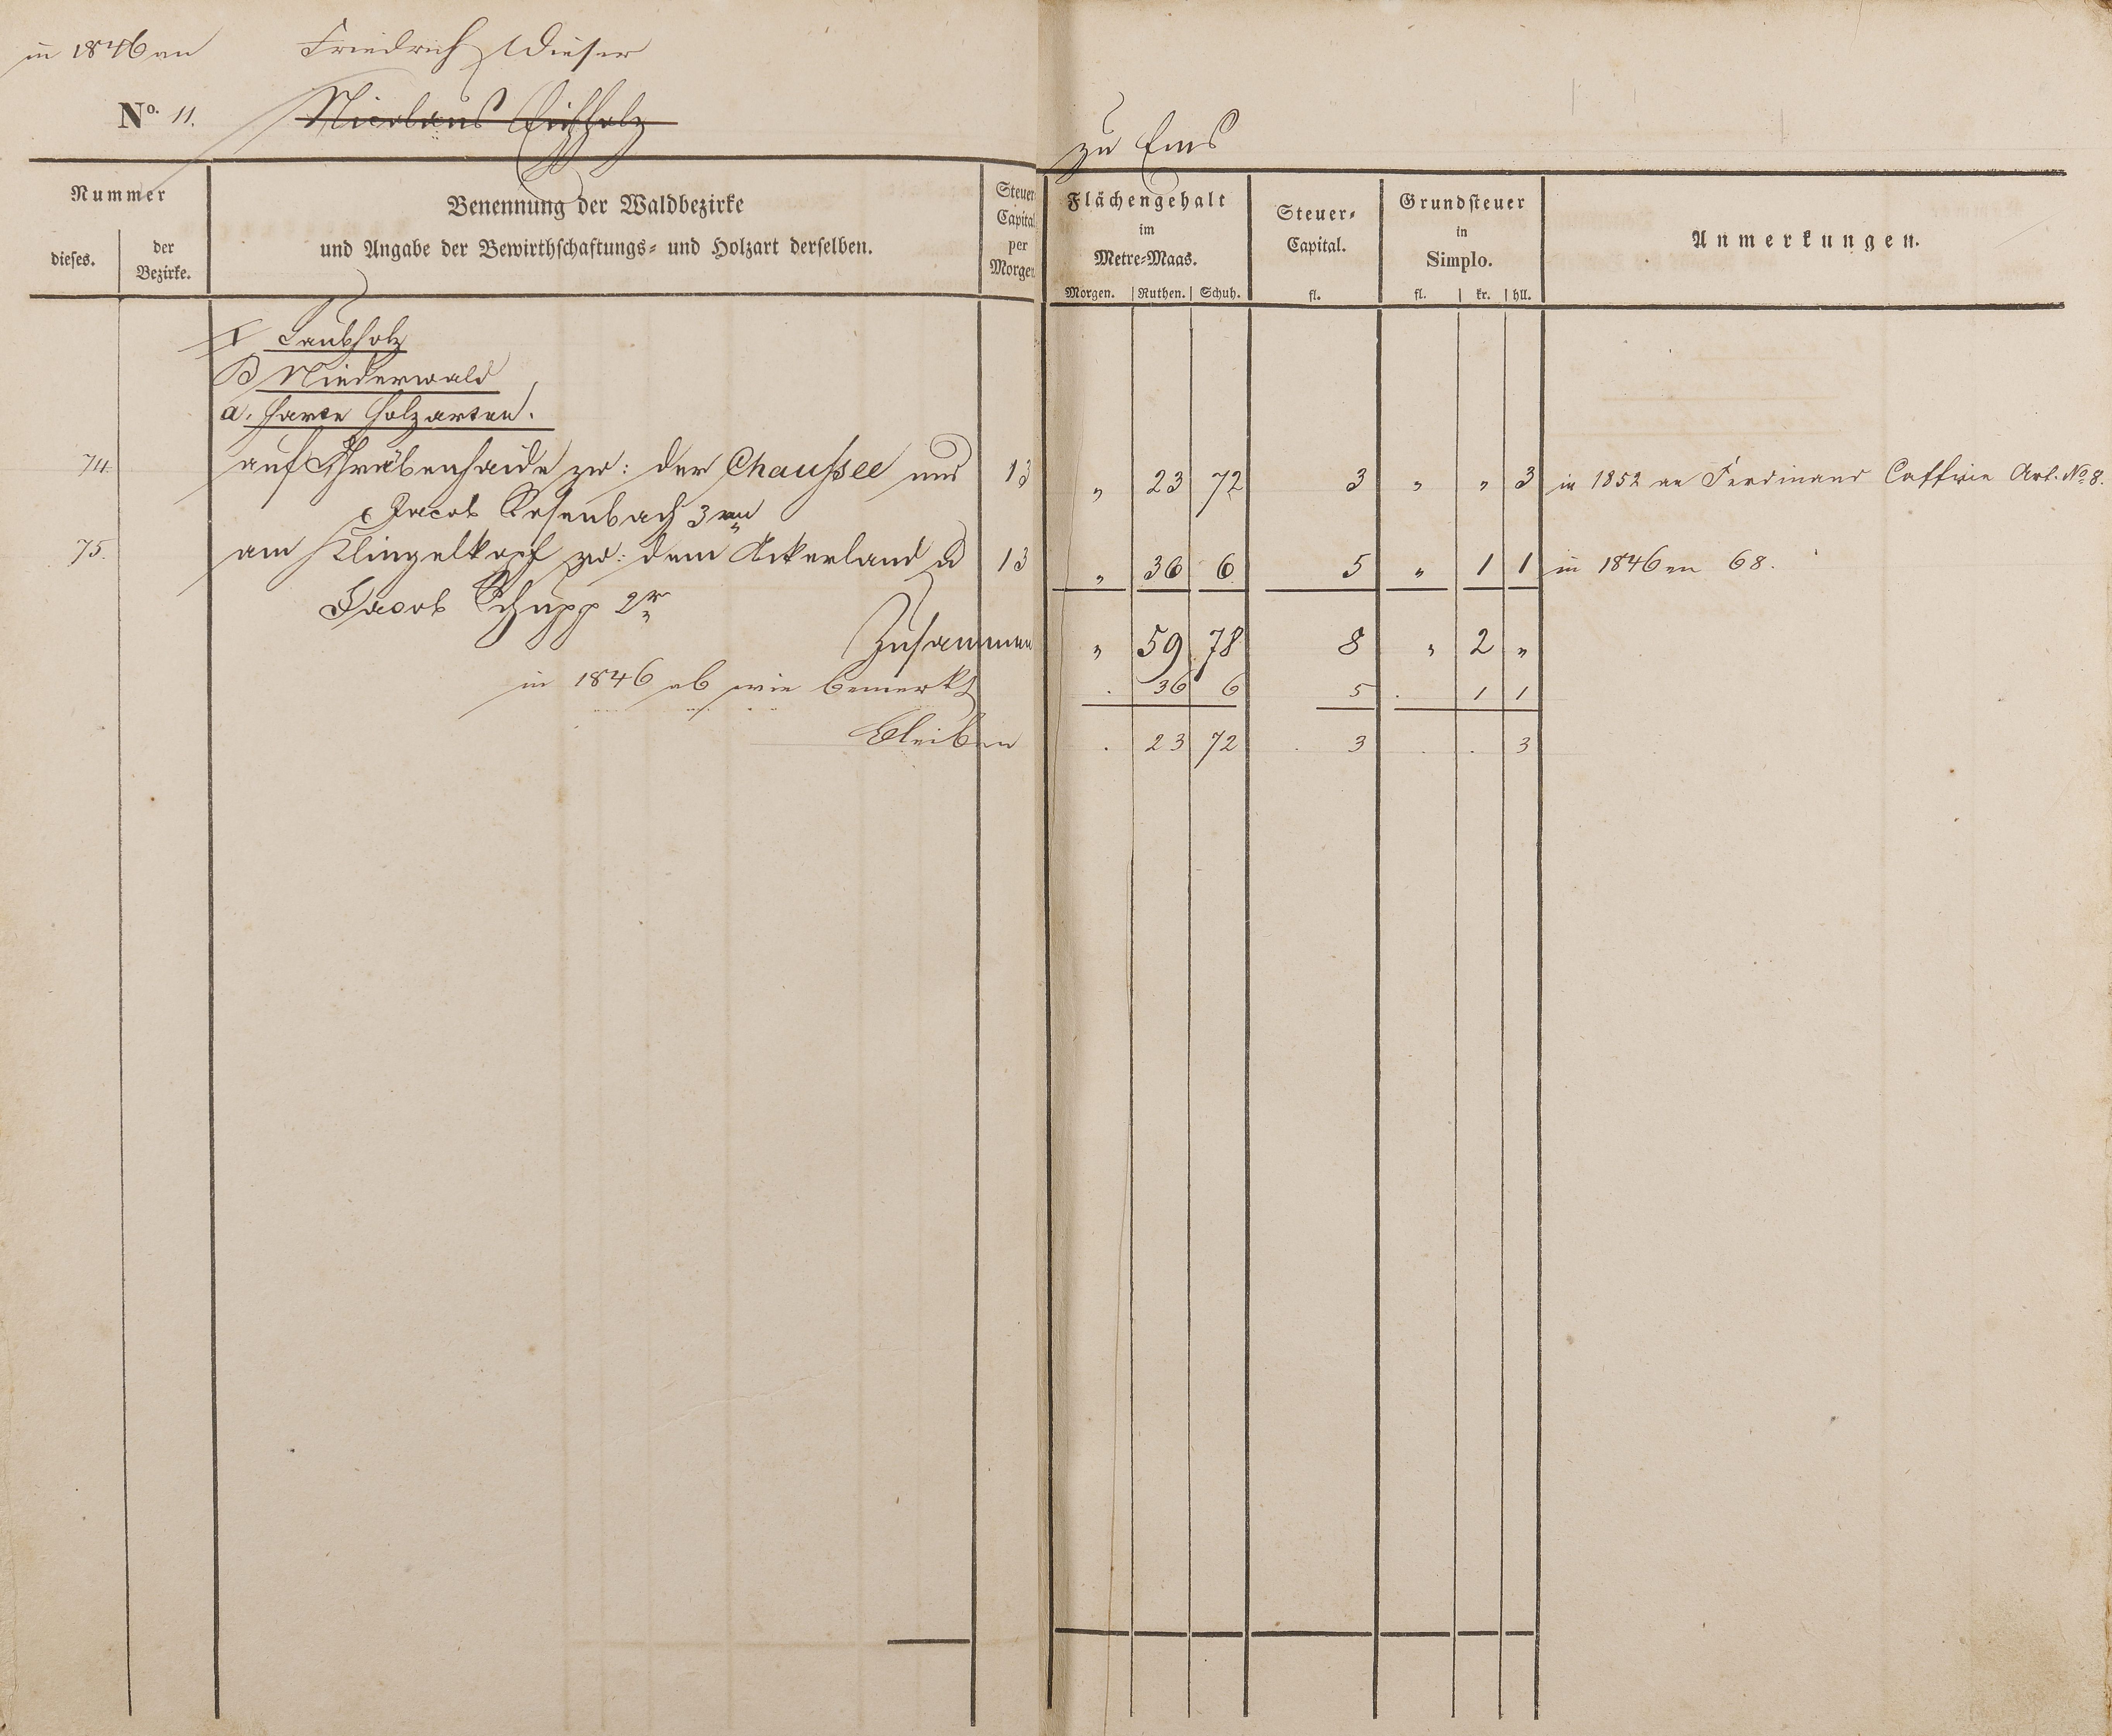 in 1846 an Friedrich Wieser
No. 11. Nicolaus Eichholz zu Ems
Nummer
dieses.
der
Bezirke.
Benennung der Waldbezirke
und Angabe der Bewirthschaftungs- und Holzart derselben.
Steuer
Capital
per
Morgen
Flächengehalt
im
Metre-Maas.
Morgen. Ruthen. Schuh.
Steuer-
Capital.
fl.
Grundsteuer
in
Simplo.
fl. kr. hll.
Anmerkungen.
I Laubholz
B Niederwald
a. harte Holzarten.
74. auf zw: der Chaussee und 13 " 23 72 3 " " 3 in 1852 an Ferdinand Art. No 8.
Jacob Rosenbach 3
75. am Klingelkopf zw: dem Ackerland u 13 " 36 6 5 " 1 1 in 1846 an 68.
Jacob Schupp 2r
Zusammen " 59 78 8 " 2 "
in 1846 ab wie bemerkt . 36 6 5 . 1 1
bleiben . 23 72 . 3 . . 3